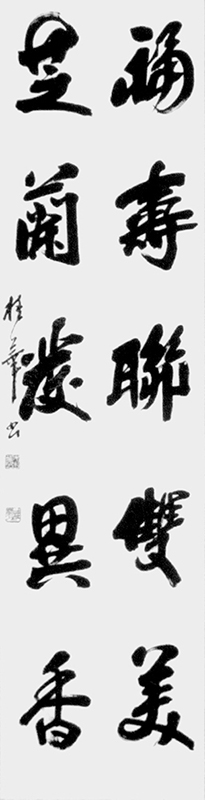 福壽聯雙美
芝蘭發異香
桂華书